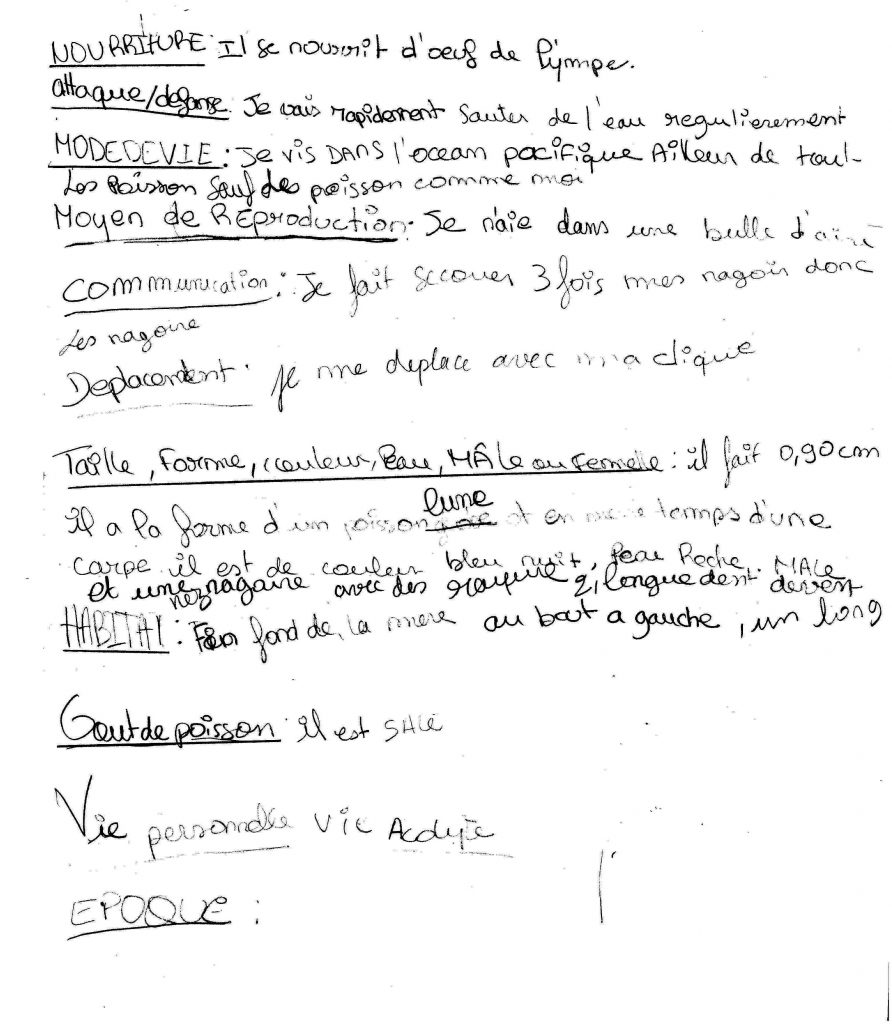 NOURRITURE: Il se nourrit d'oeuf de lympe.
attaque/defense. Je vais rapidement sauter de l'eau regulierement
MODE DE VIE: Je vis DANS l'ocean pacifique Ailleur de tout
Les Poisson Sauf des poisson comme moi
Moyen de REproduction: Je n'aie dans une bulle d'air
Communication: Je fait secouer 3 fois mes nagoir donc
Les nagoire
Deplacement: je me deplace avec ma clique
Taille, Forme, couleur, Peau, MÂLe ou Femelle: il fait 0,90 cm
lune
il a la forme d'un poisson et en meme temps d'une
carpe il est de couleur bleu nuit, Peau Reche. MALe
et une nagaire avec des 2, longue dent devent
nez
HABITAT: fond de la mere au bout a gauche, un long
Gout de poisson: il est SALé
Vie personnelle vie
EPOQUE: